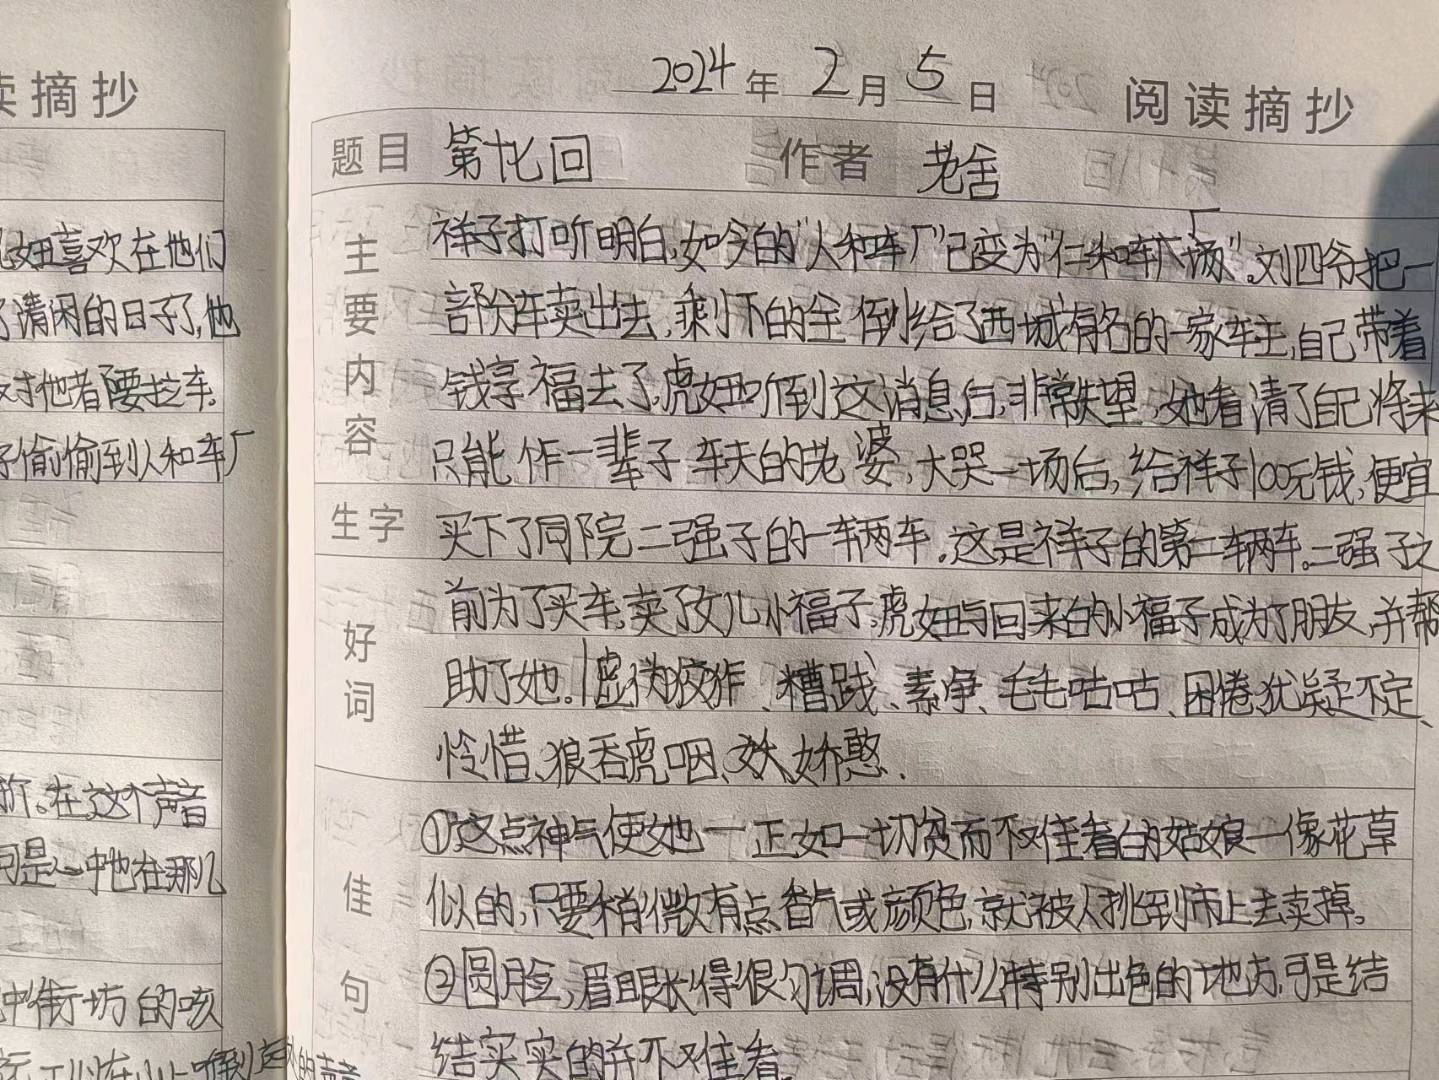 读摘抄
妞喜欢在他们
清闲的日子了,他
对他老要拉车
子偷偷到人和车厂
折。在这个声音
可是一种他在那儿
中街坊的咳
2024年2月5日 阅读摘抄
题目 第十七回 作者 老舍
主要内容
祥子打听明白,如今的“人和车厂”已变为“仁和车厂”。刘四爷把一
部分车卖出去,剩下的全倒给了西城有名的一家车主,自己带着
钱享福去了,虎妞听到这消息后,非常失望,她看清了自己将来
只能作一辈子车夫的老婆,大哭一场后,给祥子100元钱,便宜
生字
买下了同院二强子的一辆车。这是祥子的第二辆车。二强子之
前为了买车,卖了女儿小福子,虎妞与回来的小福子成为了朋友,并帮
好词
助了她。糟践、素净、毛毛咕咕、困倦、犹疑不定、
怜惜、狼吞虎咽、娇憨、
佳句
①这点神气使她——正如一切贫而不难看的姑娘——像花草
似的,只要稍微有点香气或颜色,就被人挑到市上去卖掉。
②圆脸,眉眼长得很匀调,没有什么特别出色的地方,可是结
结实实的并不难看。